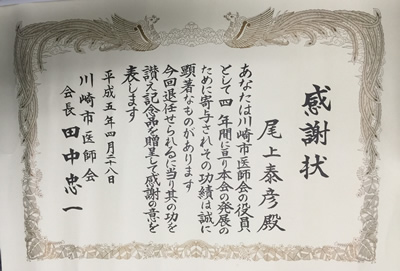 感謝状
尾上泰彦殿
あなたは川崎市医師会の役員
として四年間に亘り本会の発展の
ために寄与されその功績は誠に
顕著なものがあります
今回退任せられるに当り其の功を
讃え記念品を贈呈して感謝の意を
表します
平成五年四月二十八日
川崎市医師会
会長 田中忠一